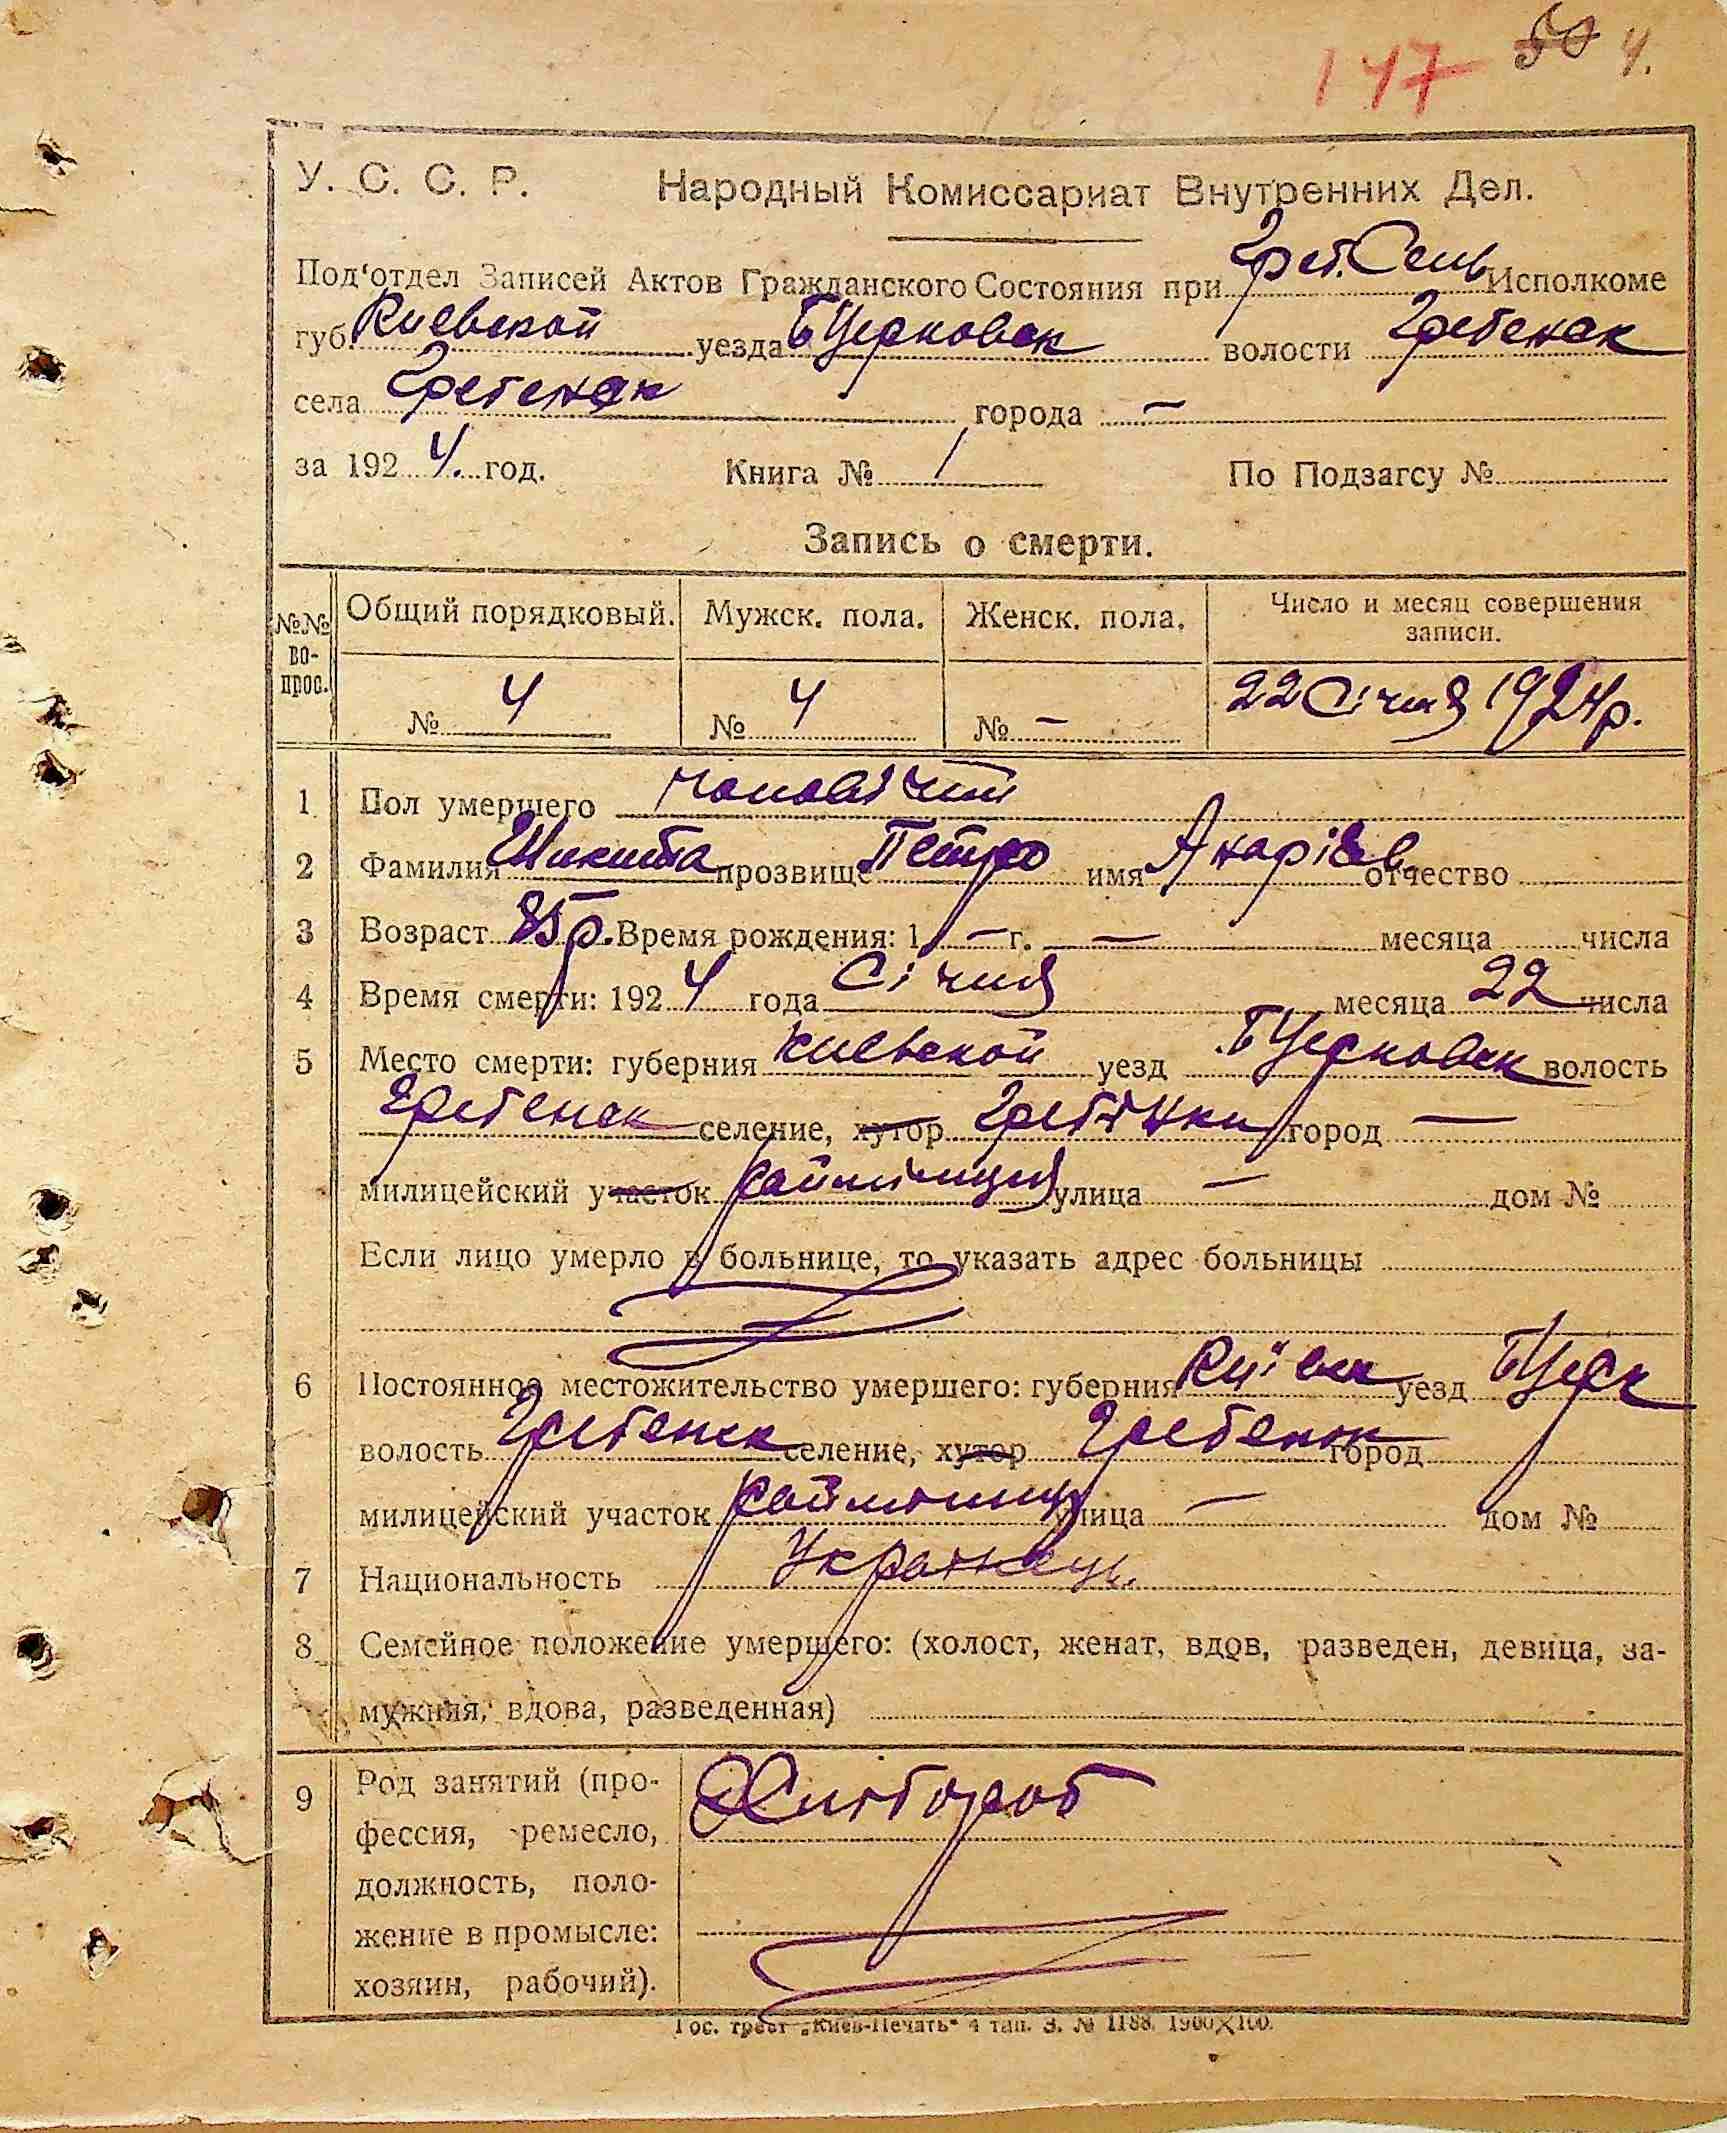 147 50 4.
У. С. С. Р. Народный Комиссариат Внутренних Дел.
Под'отдел Записей Актов Гражданского Состояния при Греб. Сель Исполкоме
губ. Киевской уезда БЦерковск волости Гребенск
села Гребенск города —
за 1924. год. Книга № 1 По Подзагсу №
Запись о смерти.
№№ вопрос. Общий порядковый. Мужск. пола. Женск. пола. Число и месяц совершения записи.
№ 4 № 4 № — 22 Січня 1924 р.
1 Пол умершего чоловічий
2 Фамилия Шикита прозвище Петро имя отчество
3 Возраст 85 р. Время рождения: 1 — г. — месяца числа
4 Время смерти: 1924 года Січня месяца 22 числа
5 Место смерти: губерния Киевской уезд БЦерковск волость
Гребенск селение, хутор Гребінки город —
милицейский участок райміліція улица — дом №
Если лицо умерло в больнице, то указать адрес больницы
6 Постоянное местожительство умершего: губерния Київск уезд БЦерк
волость Гребенск селение, хутор Гребенок город
милицейский участок райміліц улица — дом №
7 Национальность Українець.
8 Семейное положение умершего: (холост, женат, вдов, разведен, девица, за-
мужняя, вдова, разведенная)
9 Род занятий (про- Хлібороб
фессия, ремесло,
должность, поло-
жение в промысле:
хозяин, рабочий).
Гос. трест „Киев-Печать" 4 тип. З. № 1188. 1900×100.